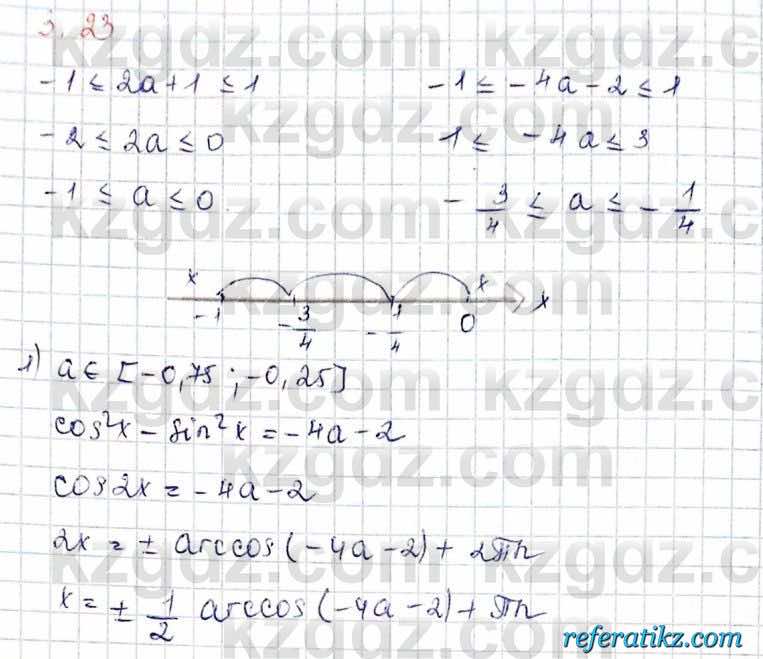 3.23
-1 ≤ 2a+1 ≤ 1
-1 ≤ -4a-2 ≤ 1
-2 ≤ 2a ≤ 0
1 ≤ -4a ≤ 3
-1 ≤ a ≤ 0
-3/4 ≤ a ≤ -1/4
x x
-1 -3/4 -1/4 0 x
1) a ∈ [-0,75; -0,25]
cos²x - sin²x = -4a-2
cos2x = -4a-2
2x = ± arccos(-4a-2) + 2πn
x = ± 1/2 arccos(-4a-2) + πn
kzgdz.com
referatikz.com